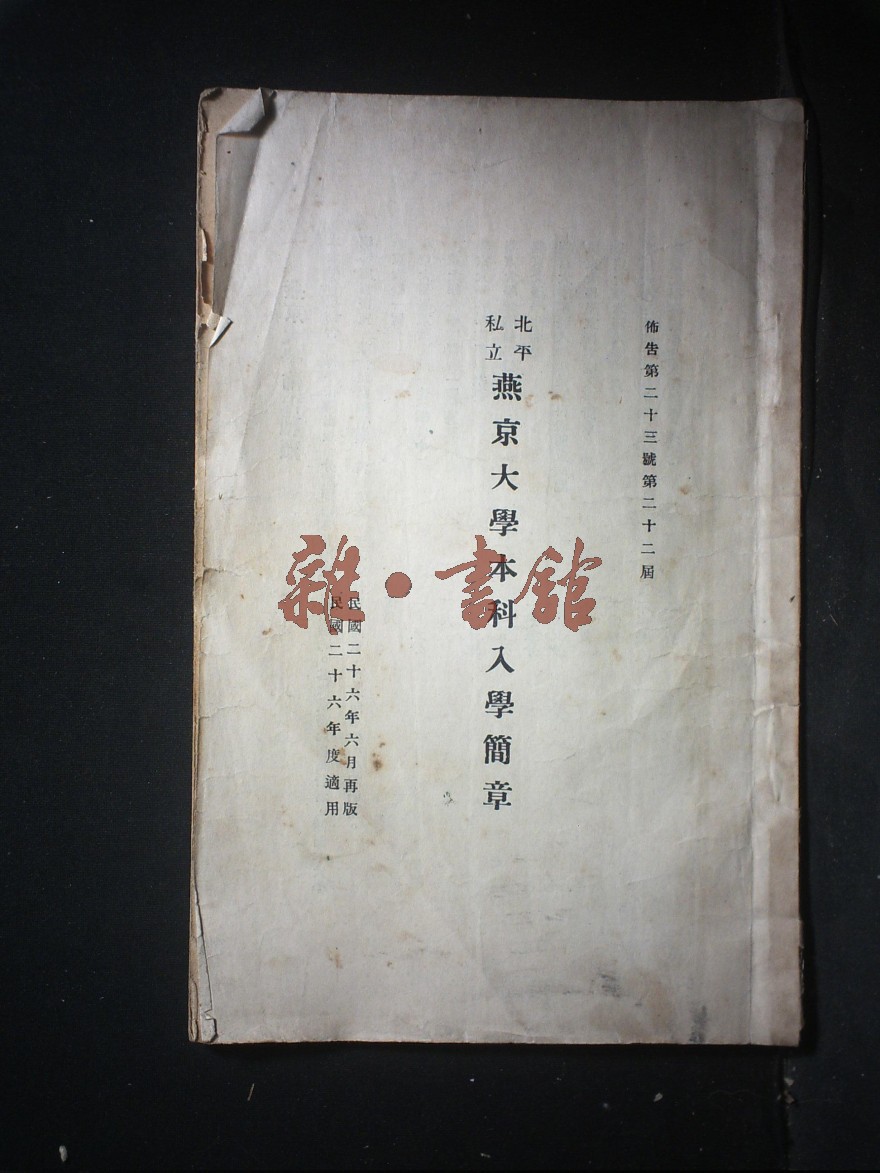 佈告第二十三號第二十二屆
北平
私立
燕京大學本科入學簡章
民國二十六年六月再版
民國二十六年度適用
雜·書館